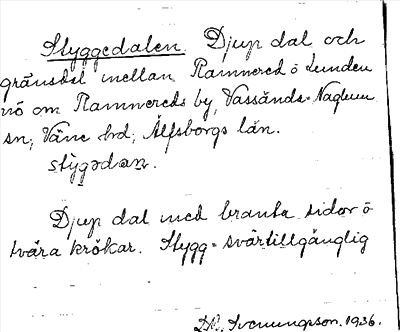 Styggedalen. Djup dal och
gränsdal mellan Ramnered o Lunden
nö om Ramnereds by, Vassända-Naglum
sn; Väne hrd; Älfsborgs län.
stỳgədan.
Djup dal med branta sidor o
tvära krökar. Stygg = svårtillgänglig
D. Svenungsson. 1936.